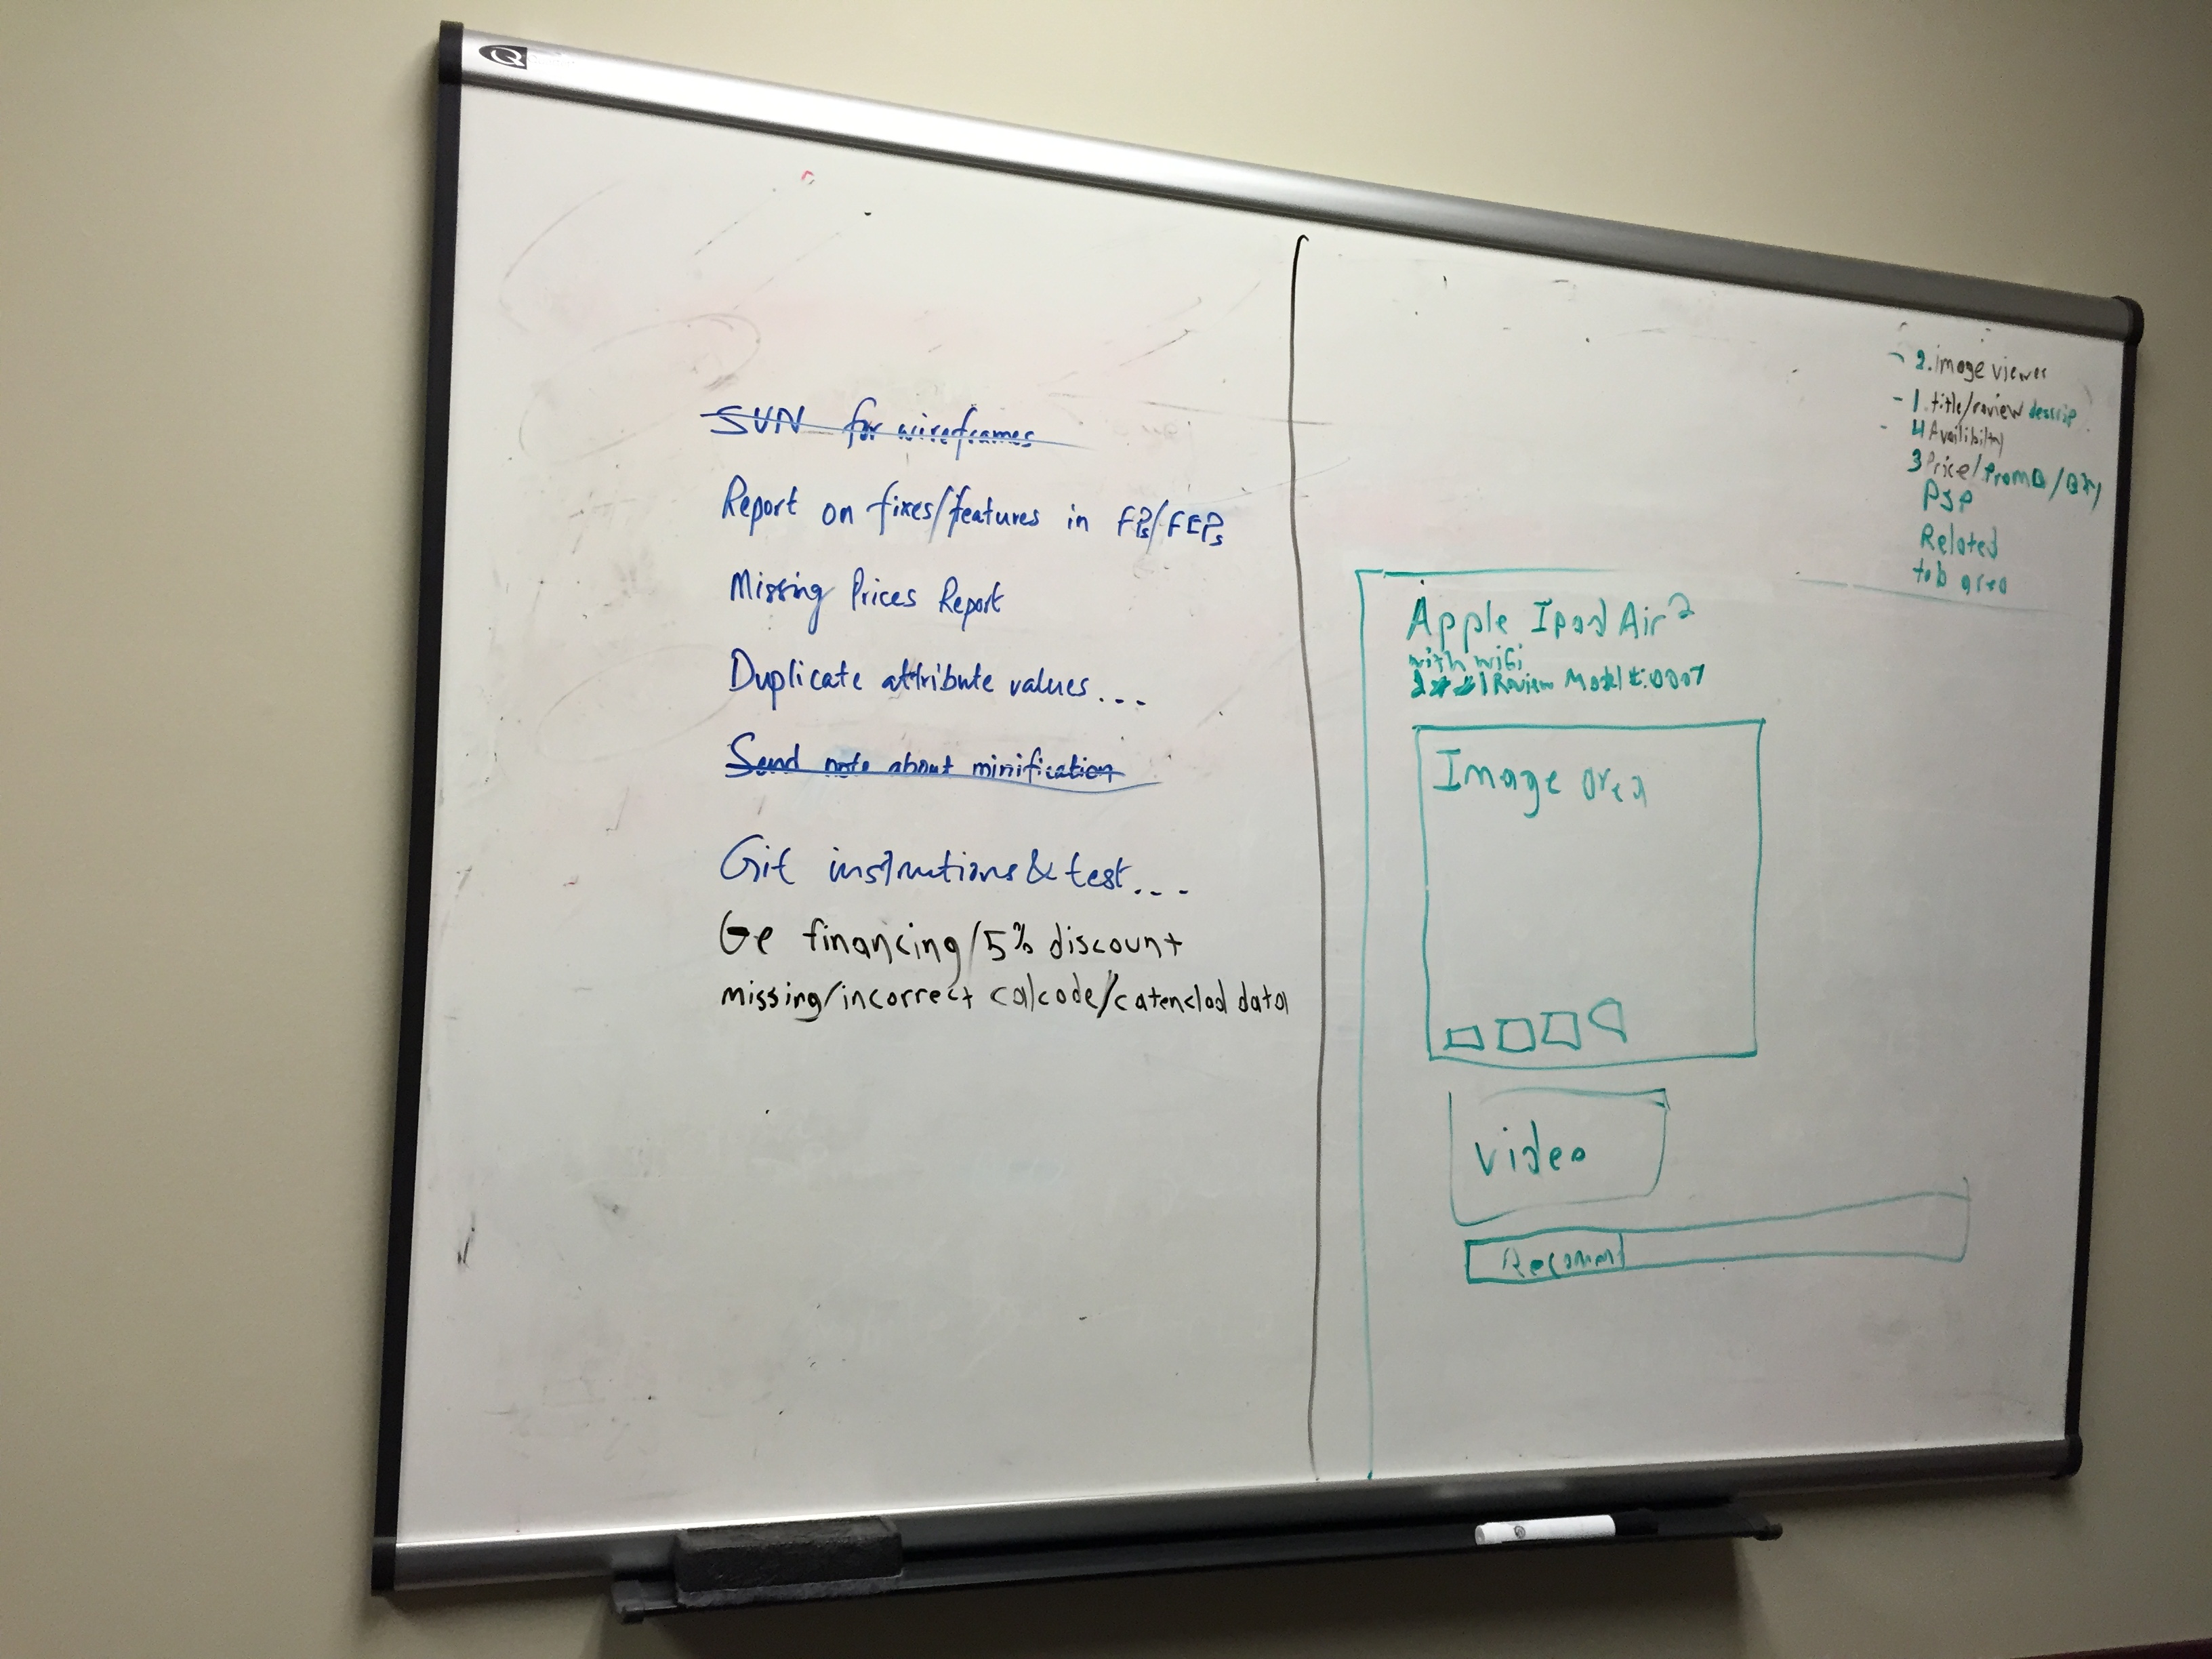 SVN for wireframes
Report on fixes/features in FPs/FEPs
Missing Prices Report
Duplicate attribute values...
Send note about minification
Git instructions & test...
Ge financing/5% discount
missing/incorrect calcode/catenclod data
2. image viewer
1. title/review descrip
4 Availibilty
3 Price/Promo/Qty
PSP
Related
tab area
Apple Ipad Air 2
with wifi
1 Review Model #:0007
Image area
Video
Recomm